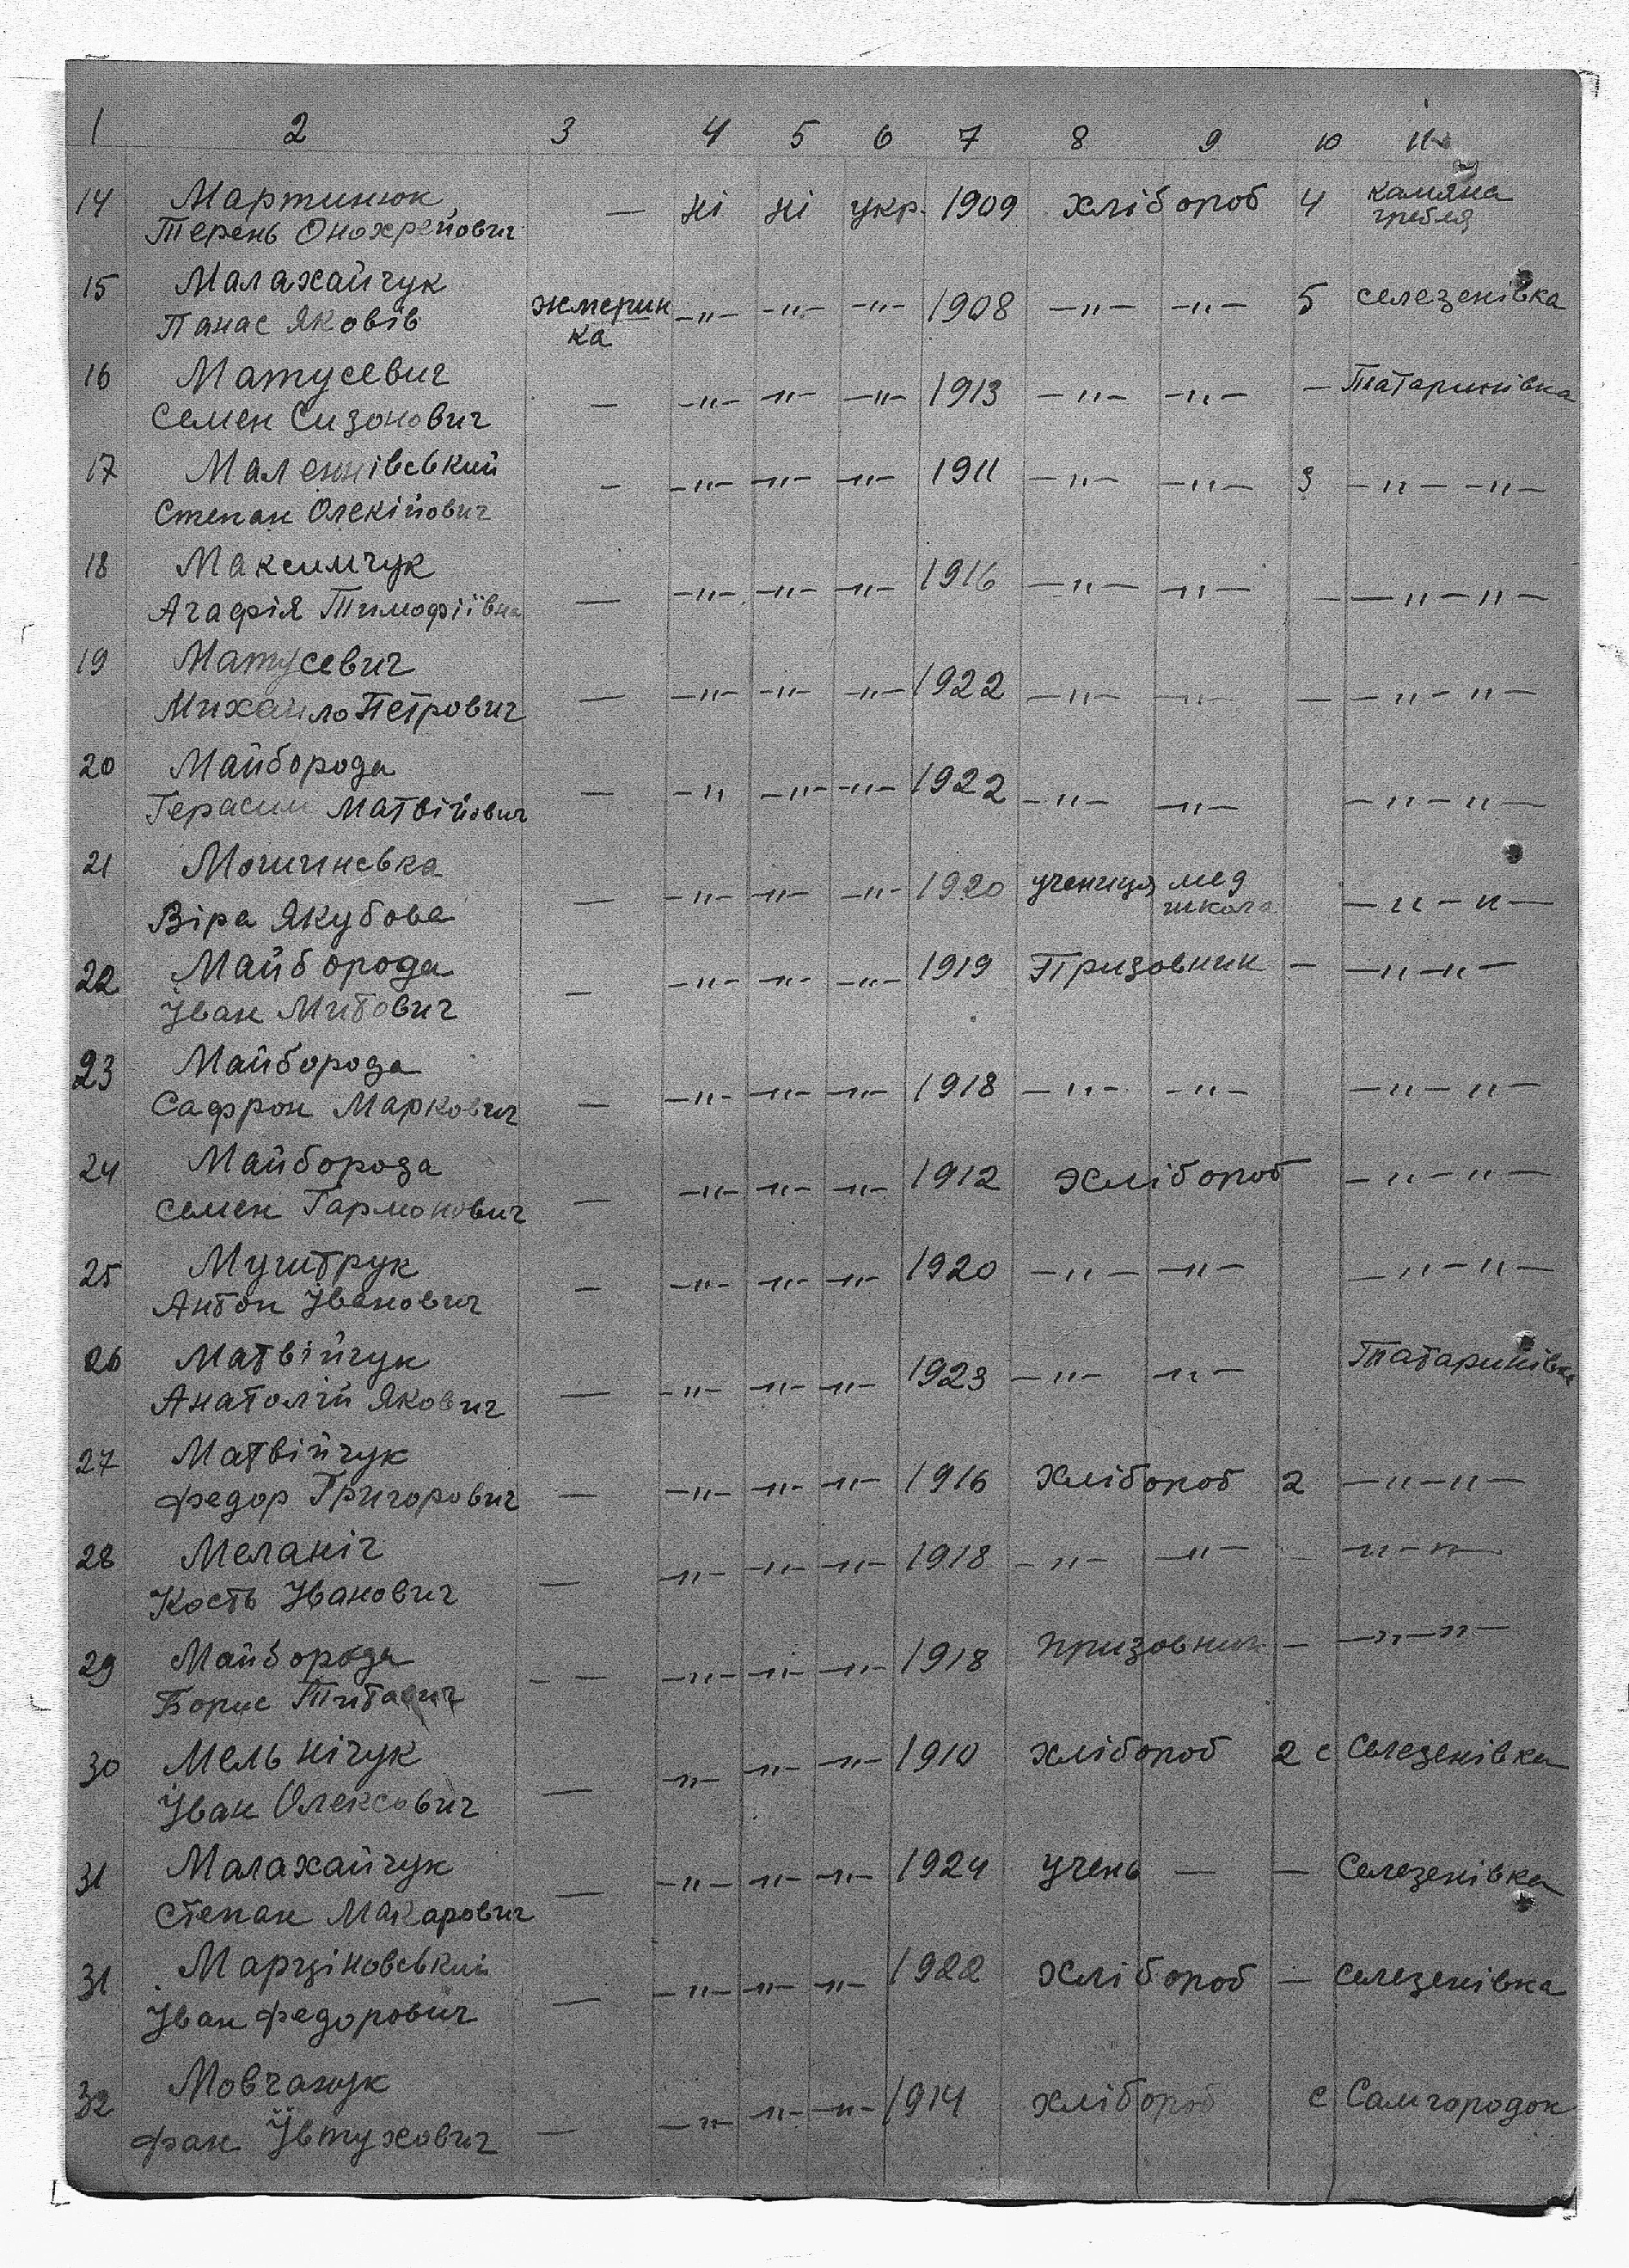 1 2 3 4 5 6 7 8 9 10 11
14 Мартинюк — ні ні укр. 1909 хлібороб 4 камяна
Терень Онохрейович гребля
15 Малахайчук жмерин —"— —"— —"— 1908 —"— —"— 5 селезенівка
Панас Яковів ка
16 Матусевич — —"— —"— —"— 1913 —"— —"— — Татаринівка
Семен Сизонович
17 Маленівський — —"— —"— —"— 1911 —"— —"— 3 —"— —"—
Степан Олекійович
18 Максимчук — —"— —"— —"— 1916 —"— —"— — —"—"—
Агафія Тимофіївна
19 Матусевич — —"— —"— —"— 1922 —"— —"— — —"—"—
Михайло Петрович
20 Майборода — —"— —"— —"— 1922 —"— —"— —"—"—
Герасим Матвійович
21 — —"— —"— —"— 1920 учениця мед —"—"—
Віра Якубова школа
22 Майборода — —"— —"— —"— 1919 Призовник — —"—"—
Іван Митович
23 Майборода — —"— —"— —"— 1918 —"— —"— —"—"—
Сафрон Маркович
24 Майборода — —"— —"— —"— 1912 Хлібороб —"—"—
Семен Гармонович
25 Муштрук — —"— —"— —"— 1920 —"— —"— —"—"—
Антон Іванович
26 Матвійчук — —"— —"— —"— 1923 —"— —"— Татаринівка
Анатолій Якович
27 Матвійчук — —"— —"— —"— 1916 Хлібороб 2 —"—"—
Федор Григорович
28 Меланіч — —"— —"— —"— 1918 —"— —"— — —"—"—
Кость Іванович
29 Майборода — —"— —"— —"— 1918 призовник — —"—"—
Борис Титович
30 Мельнічук — —"— —"— —"— 1910 хлібороб 2 с Селезенівка
Іван Олексович
31 Малахайчук — —"— —"— —"— 1924 учень — — Селезенівка
Степан Макарович
31 Марціновський — —"— —"— —"— 1922 Хлібороб — селезенівка
Іван Федорович
32 Мовчанук — —"— —"— —"— 1914 хлібороб с Самгородок
Фан Івтухович